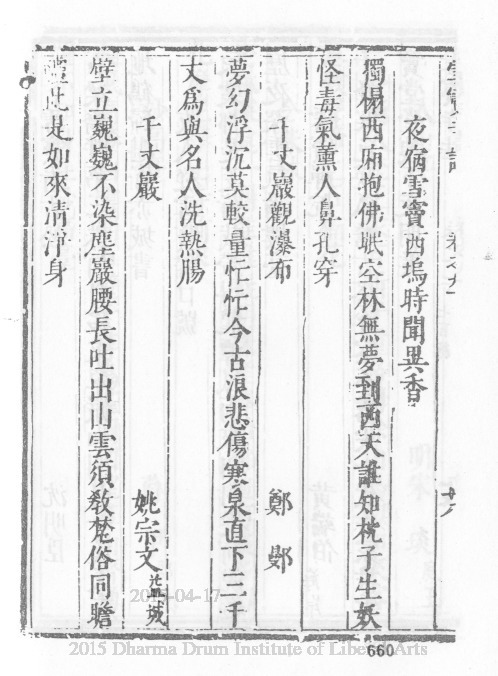 雪竇寺誌 卷之九 廿八
夜宿雪竇西塢時聞異香
獨榻西廂抱佛眠空林無夢到西天誰知枕子生妖
怪毒氣薰人鼻孔穿
千丈巖觀瀑布 鄭鄤
夢幻浮沉莫較量忙忙今古浪悲傷寒泉直下三千
丈為與名人洗熱腸
千丈巖 姚宗文
壁立巍巍不染塵巖腰長吐出山雲須教梵俗同瞻
禮此是如來清淨身
2015-04-17
2015 Dharma Drum Institute of Liberal Arts
660